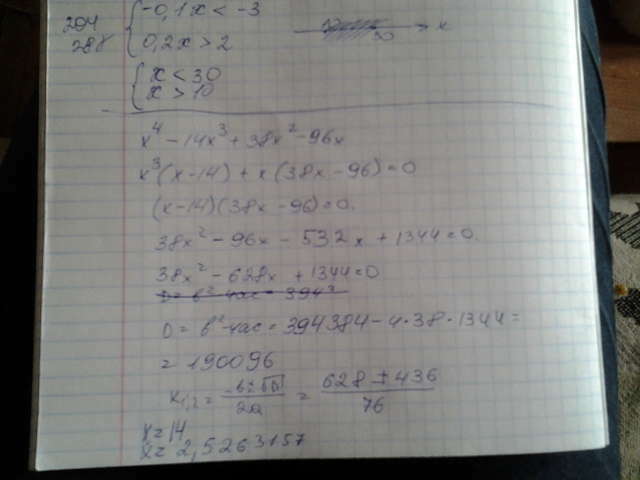 204
288
{ -0,1x < -3
0,2x > 2
x
30
{ x < 30
x > 10
x⁴ - 14x³ + 38x² - 96x
x³(x-14) + x(38x-96) = 0
(x-14)(38x-96) = 0.
38x² - 96x - 532x + 1344 = 0.
38x² - 628x + 1344 = 0
D = b² - 4ac = 394384 - 4·38·1344 =
= 190096
x₁,₂ = (-b ± √D)/2a = (628 ± 436)/76
x = 14
x = 2,5263157